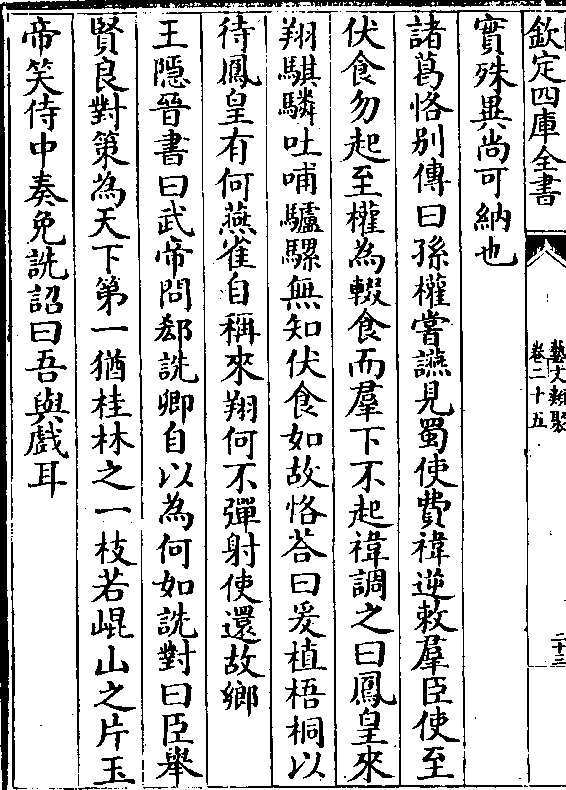 欽定四庫全書
藝文類聚
卷二十五
二十三
實殊異尚可納也
諸葛恪别傳曰孫權嘗讌見蜀使費禕逆敕羣臣使至
伏食勿起至權為輟食而羣下不起禕調之曰鳳皇來
翔騏驎吐哺驢騾無知伏食如故恪答曰爰植梧桐以
待鳳皇有何燕雀自稱來翔何不彈射使還故鄉
王隱晉書曰武帝問郄詵卿自以為何如詵對曰臣舉
賢良對策為天下第一猶桂林之一枝若崐山之片玉
帝笑侍中奏免詵詔曰吾與戲耳